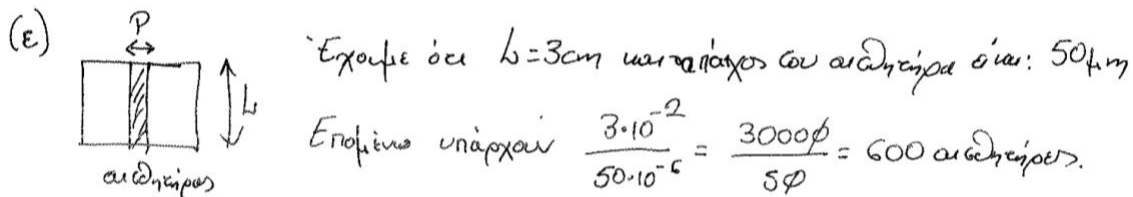 (ε)
P
L
αισθητήρας
Έχουμε ότι L = 3cm και το πάχος του αισθητήρα είναι: 50μm
Επομένως υπάρχουν 3·10⁻² / 50·10⁻⁶ = 30000 / 50 = 600 αισθητήρες.